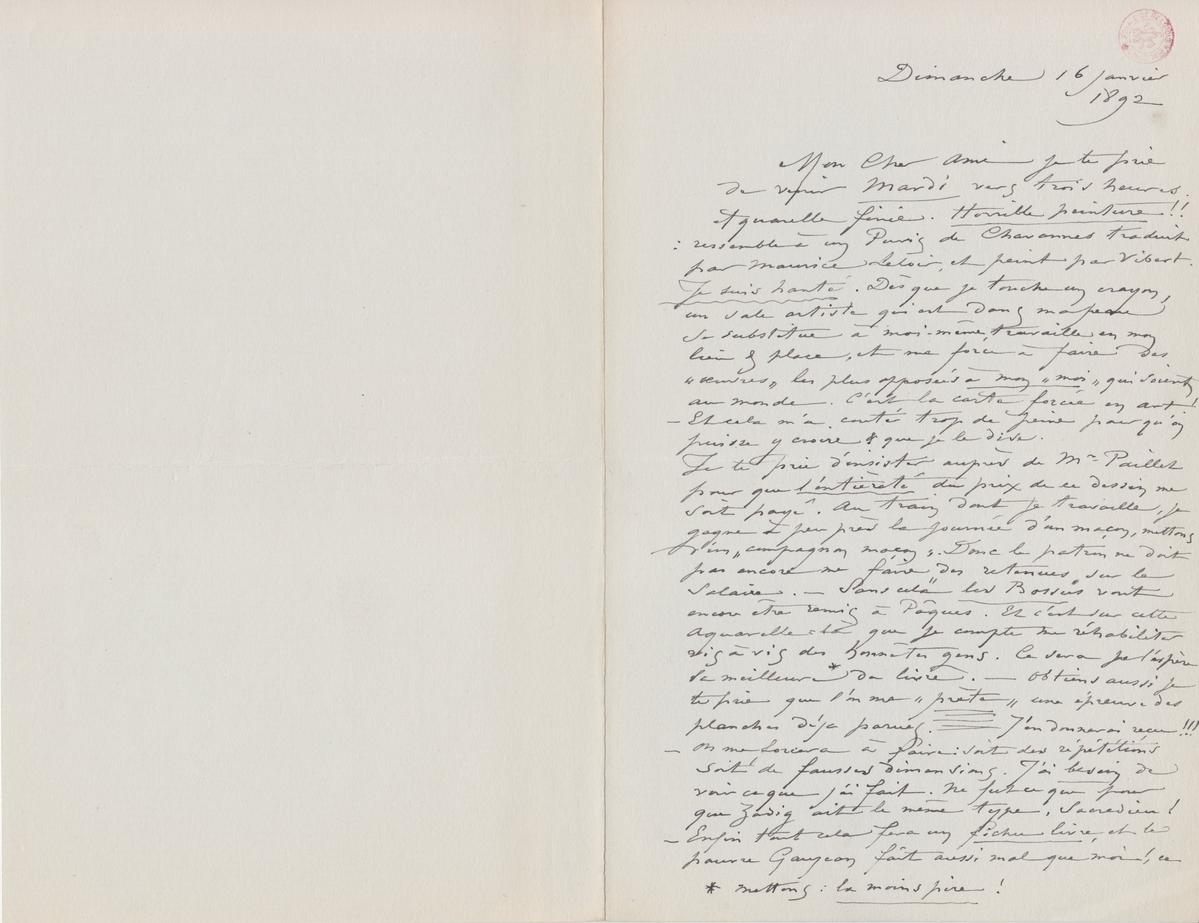 Dimanche 16 janvier
1892
Mon Cher Ami je te prie
de venir Mardi vers trois heures.
Aquarelle finie. Horrible peinture!!
: ressemble à un Puvis de Chavannes traduit
par Maurice Leloir, et peint par Vibert.
Je suis hanté. Dès que je touche un crayon,
un sale artiste qui est dans ma peau
se substitue à moi-même, travaille en mon
lieu & place, et me force à faire des
"œuvres" les plus opposées à mon "moi" qui soient
au monde. C'est la carte forcée en art!
– Et cela m'a coûté trop de peine pour qu'on
puisse y croire & que je le dise.
Je te prie d'insister auprès de Mr Paillet
pour que l'entièreté du prix de ce dessin me
soit payé. Au train dont je travaille, je
gagne à peu près la journée d'un maçon, mettons
d'un "compagnon maçon". Donc le patron ne doit
pas encore me faire des retenues sur le
salaire. – Sans cela les Bossus vont
encore être remis à Pâques. Et c'est sur cette
aquarelle-là que je compte me réhabiliter
vis à vis des honnêtes gens. Ce sera je l'espère
la meilleure* du livre. – Obtiens aussi je
te prie que l'on me "prête" une épreuve des
planches déjà parues. J'en donnerai reçu!!!
– On me forcera à faire: soit des répétitions
soit de fausses dimensions. J'ai besoin de
voir ce que j'ai fait. Ne fut ce que pour
que Zadig ait le même type, sacredieu!
– Enfin tout cela fera un fichu livre, et le
pauvre Gaujean fait aussi mal que moi!, ce
* mettons: la moins pire!